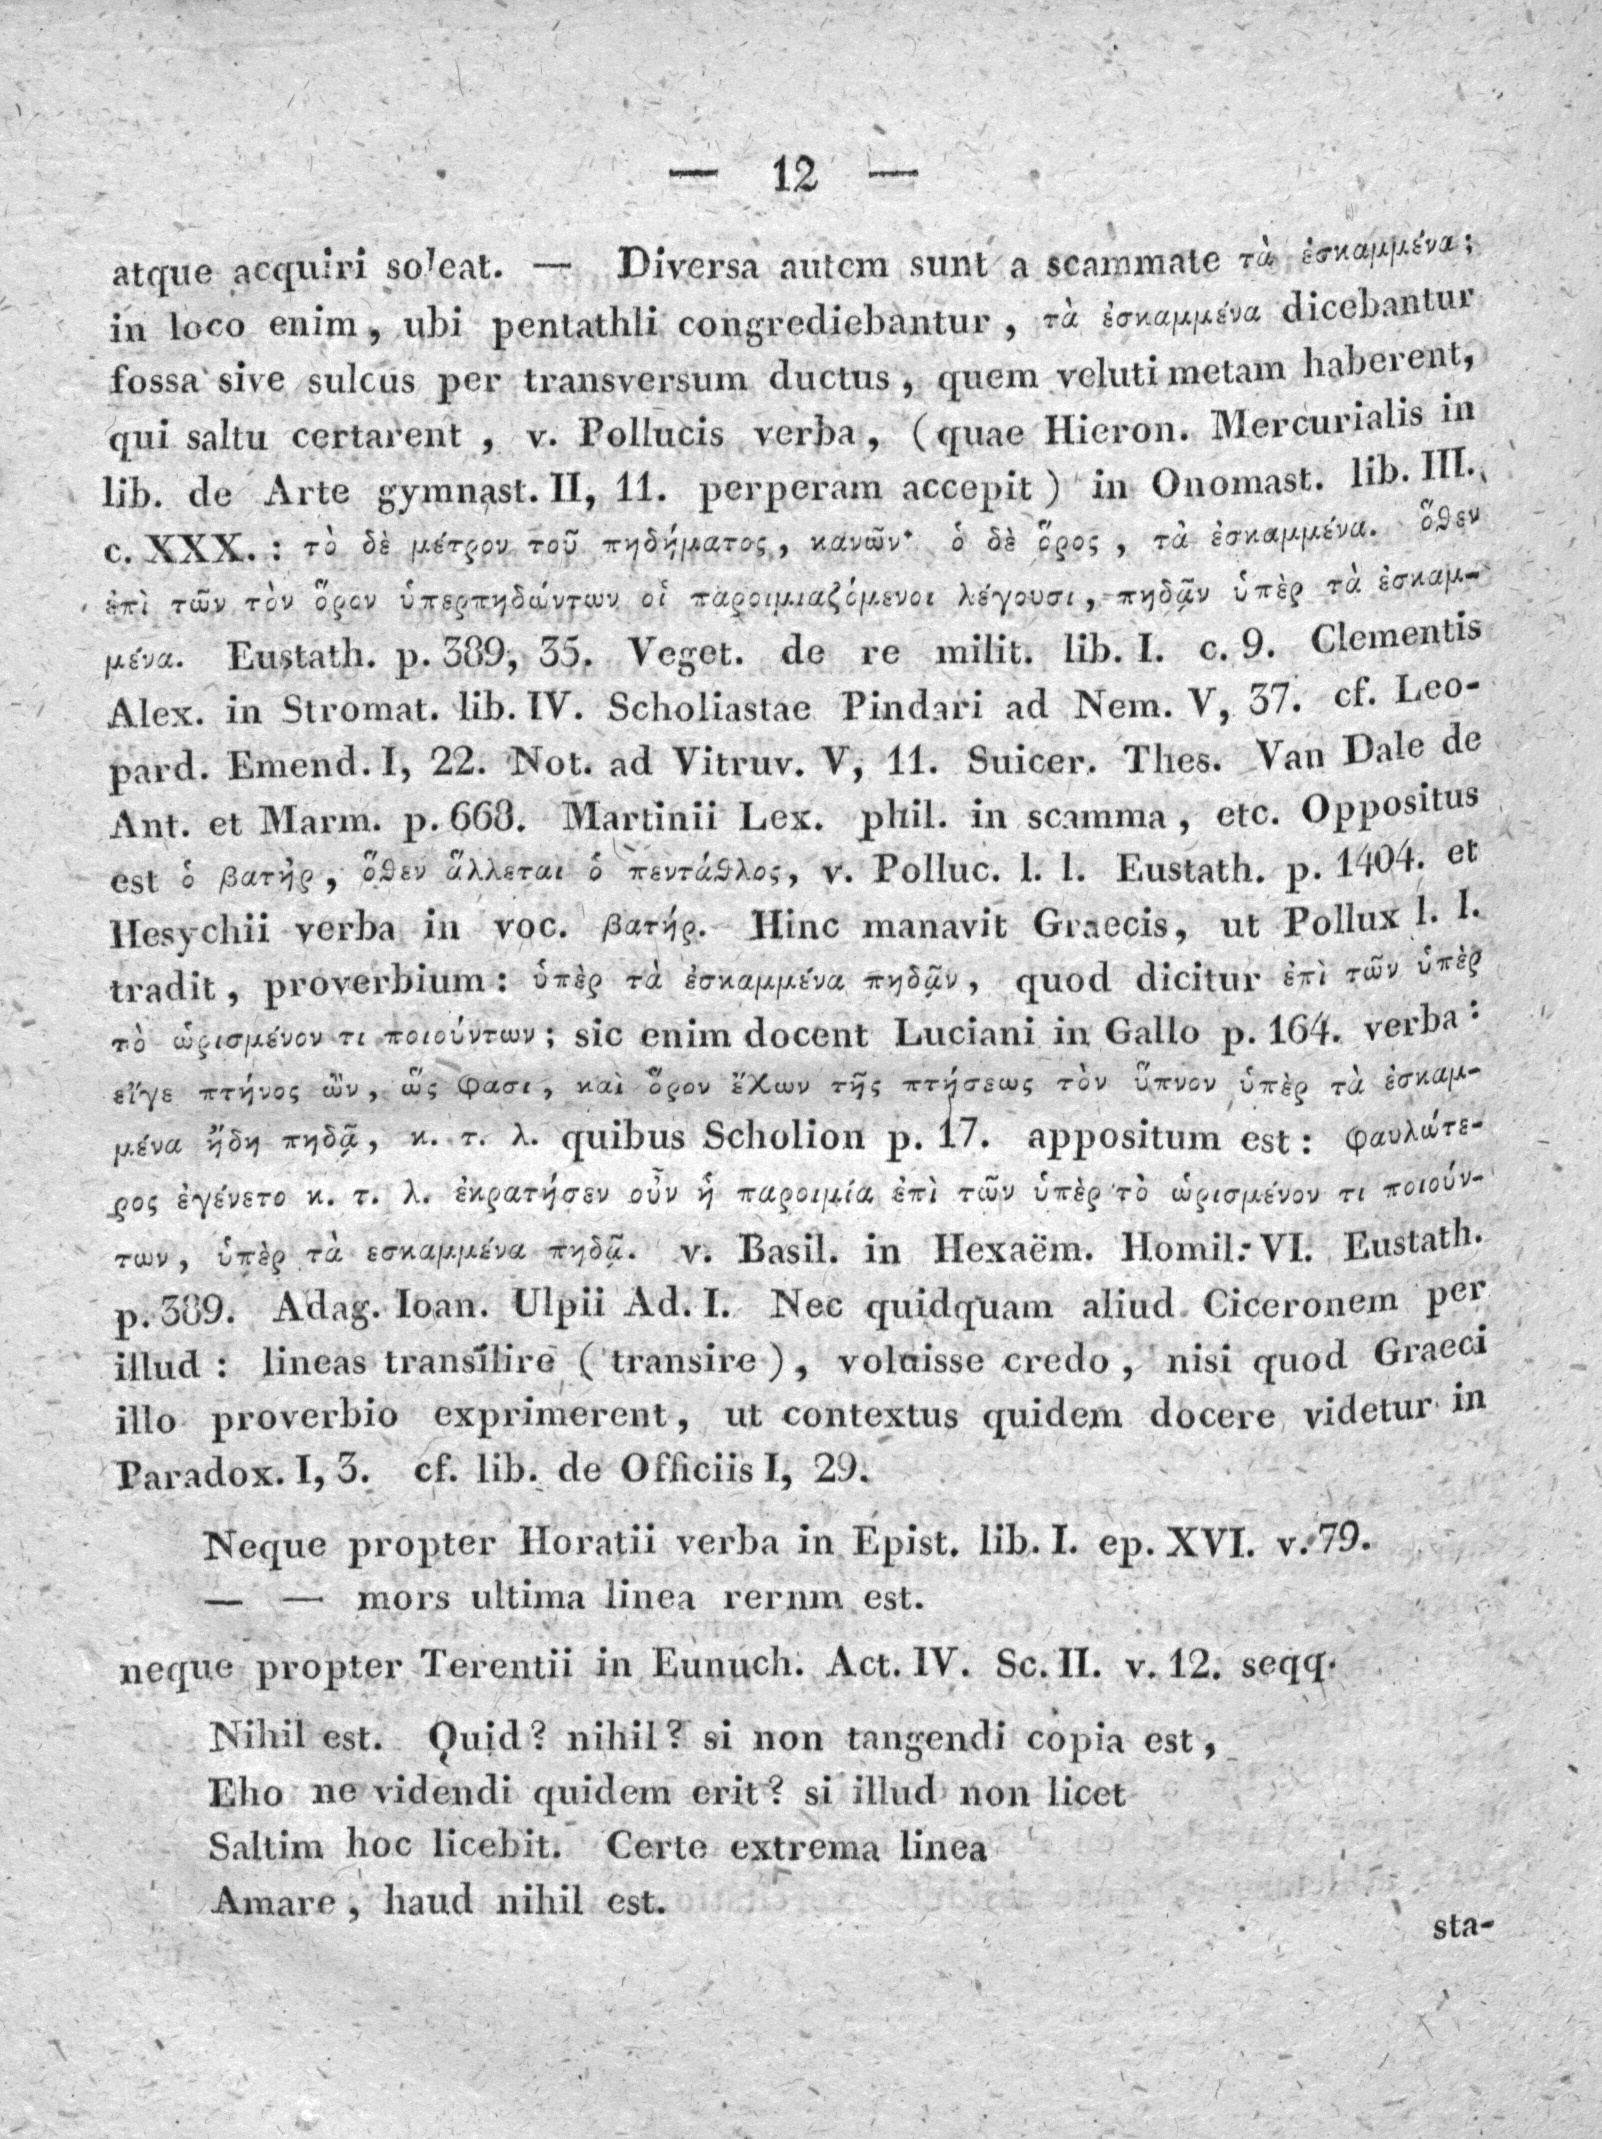 — 12 —
atque acquiri soleat. — Diversa autem sunt a scammate τὰ ἐσκαμμένα;
in loco enim, ubi pentathli congrediebantur, τὰ ἐσκαμμένα dicebantur
fossa sive sulcus per transversum ductus, quem veluti metam haberent,
qui saltu certarent, v. Pollucis verba, (quae Hieron. Mercurialis in
lib. de Arte gymnast. II, 11. perperam accepit) in Onomast. lib. III.
c. XXX.: τὸ δὲ μέτρον τοῦ πηδήματος, κανῶν· ὁ δὲ ὅρος, τὰ ἐσκαμμένα. ὅθεν
ἐπὶ τῶν τὸν ὅρον ὑπερπηδώντων οἱ παροιμιαζόμενοι λέγουσι, πηδᾷν ὑπὲρ τὰ ἐσκαμ-
μένα. Eustath. p. 389, 35. Veget. de re milit. lib. I. c. 9. Clementis
Alex. in Stromat. lib. IV. Scholiastae Pindari ad Nem. V, 37. cf. Leo-
pard. Emend. I, 22. Not. ad Vitruv. V, 11. Suicer. Thes. Van Dale de
Ant. et Marm. p. 668. Martinii Lex. phil. in scamma, etc. Oppositus
est ὁ βατὴρ, ὅθεν ἅλλεται ὁ πεντάθλος, v. Polluc. l. l. Eustath. p. 1404. et
Hesychii verba in voc. βατήρ. Hinc manavit Graecis, ut Pollux l. l.
tradit, proverbium: ὑπὲρ τὰ ἐσκαμμένα πηδᾷν, quod dicitur ἐπὶ τῶν ὑπὲρ
τὸ ὡρισμένον τι ποιούντων; sic enim docent Luciani in Gallo p. 164. verba:
εἴγε πτήνος ὢν, ὥς φασι, καὶ ὅρον ἔχων τῆς πτήσεως τὸν ὕπνον ὑπὲρ τὰ ἐσκαμ-
μένα ἤδη πηδᾷ, κ. τ. λ. quibus Scholion p. 17. appositum est: φαυλώτε-
ρος ἐγένετο κ. τ. λ. ἐκρατήσεν οὖν ἡ παροιμία ἐπὶ τῶν ὑπὲρ τὸ ὡρισμένον τι ποιούν-
των, ὑπὲρ τὰ εσκαμμένα πηδᾷ. v. Basil. in Hexaëm. Homil. VI. Eustath.
p. 389. Adag. Ioan. Ulpii Ad. I. Nec quidquam aliud Ciceronem per
illud: lineas transilire (transire), voluisse credo, nisi quod Graeci
illo proverbio exprimerent, ut contextus quidem docere videtur in
Paradox. I, 3. cf. lib. de Officiis I, 29.
Neque propter Horatii verba in Epist. lib. I. ep. XVI. v. 79.
— — mors ultima linea rernm est.
neque propter Terentii in Eunuch. Act. IV. Sc. II. v. 12. seqq.
Nihil est. Quid? nihil? si non tangendi copia est,
Eho ne videndi quidem erit? si illud non licet
Saltim hoc licebit. Certe extrema linea
Amare, haud nihil est.
sta-